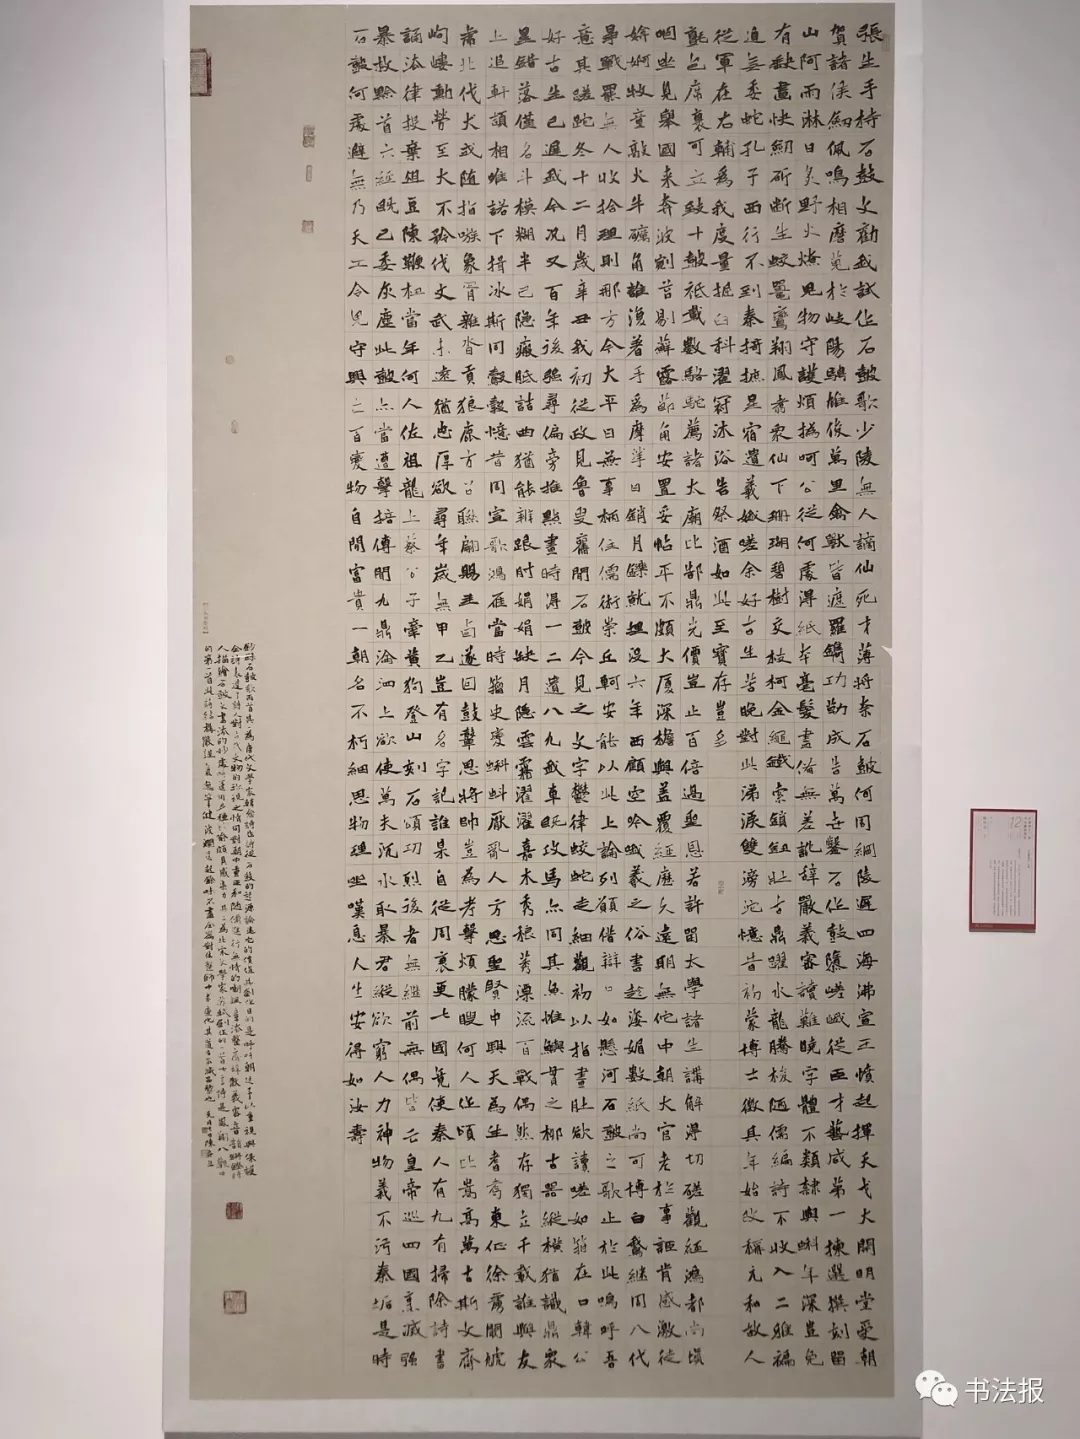 張生手持石鼓文勸我試作石鼓歌少陵無人謫仙死才薄將奈石鼓何周綱陵遲四海沸宣王憤起揮天戈大開明堂受朝
賀諸侯劍佩鳴相磨蒐於岐陽騁雄俊萬里禽獸皆遮羅鐫功勒成告萬世鑿石作鼓隳嵯峨從臣才藝咸第一揀選撰刻留
山阿雨淋日炙野火燎鬼物守護煩撝呵公從何處得紙本毫髮盡備無差訛辭嚴義密讀難曉字體不類隸與蝌年深豈免
有缺畫快劍斫斷生蛟鼉鸞翔鳳翥眾仙下珊瑚碧樹交枝柯金繩鐵索鎖鈕壯古鼎躍水龍騰梭陋儒編詩不收入二雅褊
迫無委蛇孔子西行不到秦掎摭星宿遺羲娥嗟余好古生苦晚對此涕淚雙滂沱憶昔初蒙博士徵其年始改稱元和故人
從軍在右輔為我度量掘臼科濯冠沐浴告祭酒如此至寶存豈多
氈包席裹可立致十鼓祇載數駱駝薦諸太廟比郜鼎光價豈止百倍過聖恩若許留太學諸生講解得切磋觀經鴻都尚填
咽坐見舉國來奔波剜苔剔蘚露節角安置妥帖平不頗大廈深檐與蓋覆經歷久遠期無佗中朝大官老於事詎肯感激徒
媕婀牧童敲火牛礪角誰復著手為摩挲日銷月鑠就埋沒六年西顧空吟哦羲之俗書趁姿媚數紙尚可博白鵝繼周八代
爭戰罷無人收拾理則那方今太平日無事柄任儒術崇丘軻安能以此上論列願借辯口如懸河石鼓之歌止於此嗚呼吾
意其蹉跎冬十二月歲辛丑我初從政見魯叟舊聞石鼓今見之文字鬱律蛟蛇走細觀初以指畫肚欲讀嗟如箝在口韓公
好古生已遲我今況又百年後強尋偏旁推點畫時得一二遺八九我車既攻馬亦同其魚惟鱮貫之柳古器縱橫猶識鼎眾
星錯落僅名斗模糊半已隱瘢胝詰曲猶能辨跟肘娟娟缺月隱雲霧濯濯嘉禾秀稂莠漂流百戰偶然存獨立千載誰與友
上追軒頡相唯諾下揖冰斯同鷇㝅憶昔周宣歌鴻雁當時籀史變蝌蚪厭亂人方思聖賢中興天為生耆耇東征徐虜闞虓
虎北伐犬戎隨指嗾象胥雜沓貢狼鹿方召聯翩賜圭卣遂因鼓鼙思將帥豈為考擊煩矇瞍何人作頌比嵩高萬古斯文齊
岣嶁勳勞至大不矜伐文武未遠猶忠厚欲尋年歲無甲乙豈有名字記誰某自從周衰更七國竟使秦人有九有掃除詩書
誦法律投棄俎豆陳鞭杻當年何人佐祖龍上蔡公子牽黃狗登山刻石頌功烈後者無繼前無偶皆云皇帝巡四國烹滅強
暴救黔首六經既已委灰塵此鼓亦當遭擊掊傳聞九鼎淪泗上欲使萬夫沉水取暴君縱欲窮人力神物義不污秦垢是時
石鼓何處避無乃天工令鬼守興亡百變物自閒富貴一朝名不朽細思物理坐嘆息人生安得如汝壽
书法报